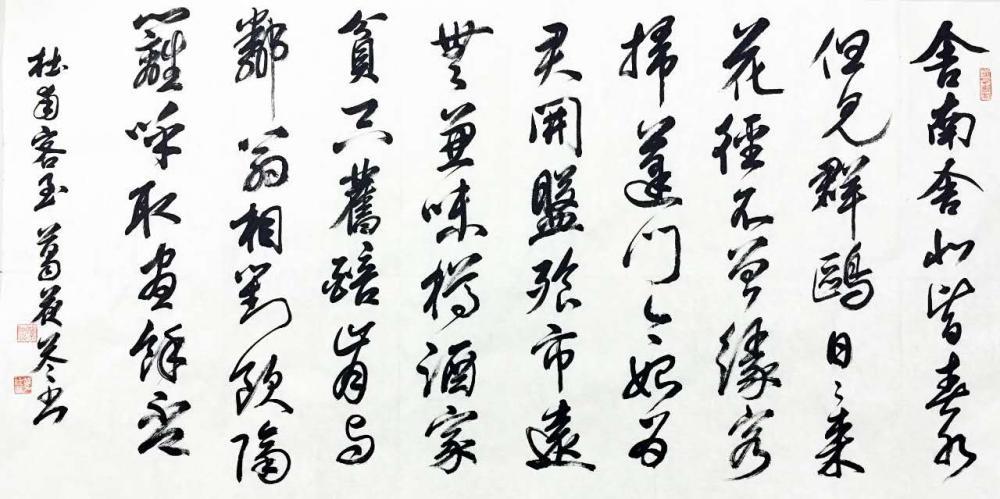 舍南舍北皆春水
但見群鷗日〻來
花徑不曾緣客
掃蓬門今始為
君開盤飧市遠
無兼味樽酒家
貧只舊醅肯與
鄰翁相對飲隔
籬呼取盡餘盃
杜甫客至 葛